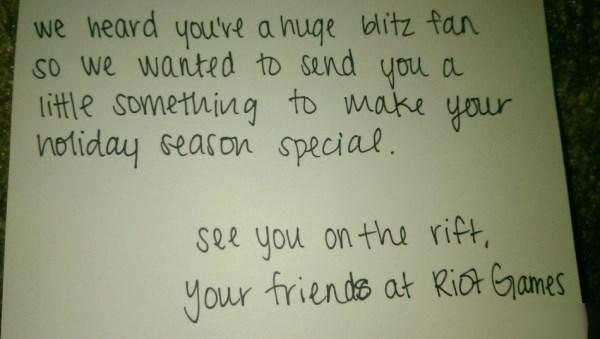 we heard you're a huge blitz fan
so we wanted to send you a
little something to make your
holiday season special.
see you on the rift,
your friends at Riot Games